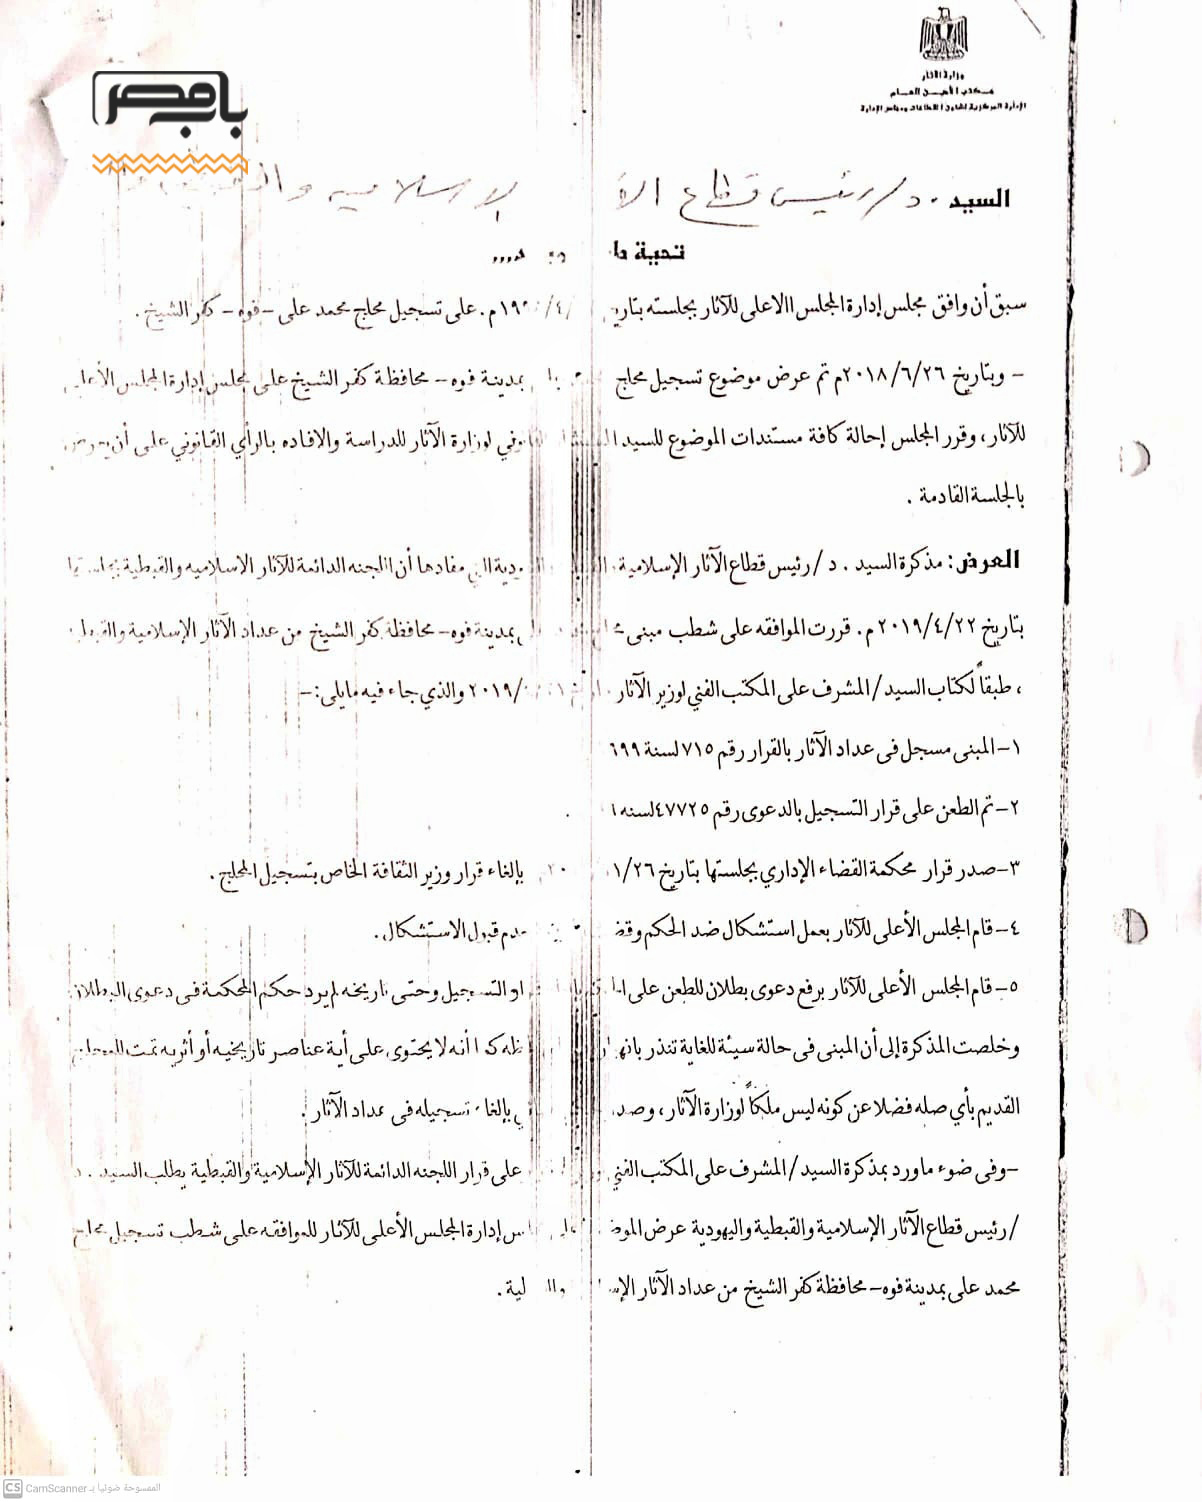 وزارة الآثار
مكتب الأمين العام
الإدارة المركزية لشئون القطاعات ومجلس الإدارة
باب مصر
السيد . د/ رئيس قطاع الإسلامية
تحية
سبق أن وافق مجلس إدارة المجلس االاعلى للآثار بجلسته بتاريخ م. على تسجيل محلج محمد على - فوه - كفر الشيخ .
- وبتاريخ ٢٠١٨/٦/٢٦م تم عرض موضوع تسجيل محلج بمدينة فوه - محافظة كفر الشيخ على مجلس إدارة المجلس الأعلى
للآثار، وقرر المجلس إحالة كافة مستندات الموضوع للسيد القانوني لوزارة الآثار للدراسة والافاده بالرأي القانوني على أن
بالجلسة القادمة .
العرض: مذكرة السيد . د / رئيس قطاع الآثار الإسلامية مفادها أن اللجنه الدائمة للآثار الاسلاميه والقبطية بجلستها
بتاريخ ٢٠١٩/٤/٢٢م. قررت الموافقه على شطب مبنى بمدينة فوه - محافظة كفر الشيخ من عداد الآثار الإسلامية والقبطية
، طبقاً لكتاب السيد / المشرف على المكتب الفني لوزير الآثار والذي جاء فيه مايلى:-
١- المبنى مسجل فى عداد الآثار بالقرار رقم ٧١٥ لسنة
٢- تم الطعن على قرار التسجيل بالدعوى رقم ٤٧٧٢٥ لسنه
٣- صدر قرار محكمة القضاء الإداري بجلستها بتاريخ بإلغاء قرار وزير الثقافة الخاص بتسجيل المحلج .
٤- قام المجلس الأعلى للآثار بعمل استشكال ضد الحكم قبول الاستشكال .
٥- قام المجلس الأعلى للآثار برفع دعوى بطلان للطعن على التسجيل وحتى تاريخه لم يرد حكم المحكمة فى دعوى البطلان
وخلصت المذكرة إلى أن المبنى فى حالة سيئة للغاية تنذر كما أنه لا يحتوى على أية عناصر تاريخيه أو أثريه تمت للمحلج
القديم بأي صله فضلا عن كونه ليس ملكاً لوزارة الآثار، بإلغاء تسجيله فى عداد الآثار .
-وفى ضوء ماورد بمذكرة السيد / المشرف على المكتب الفني على قرار اللجنه الدائمة للآثار الإسلامية والقبطية يطلب السيد . د
/ رئيس قطاع الآثار الإسلامية والقبطية واليهودية عرض إدارة المجلس الأعلى للآثار للموافقه على شطب تسجيل محلج
محمد على بمدينة فوه - محافظة كفر الشيخ من عداد الآثار
CS CamScanner الممسوحة ضوئيا بـ